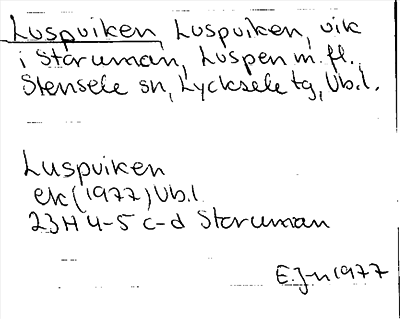 Luspviken Luspviken, vik
i Storuman, Luspen m.fl.
Stensele sn, Lycksele tg, Vb.l.
Luspviken
ek (1977) Vb.l.
23H 4-5 c-d Storuman
E.J-n 1977